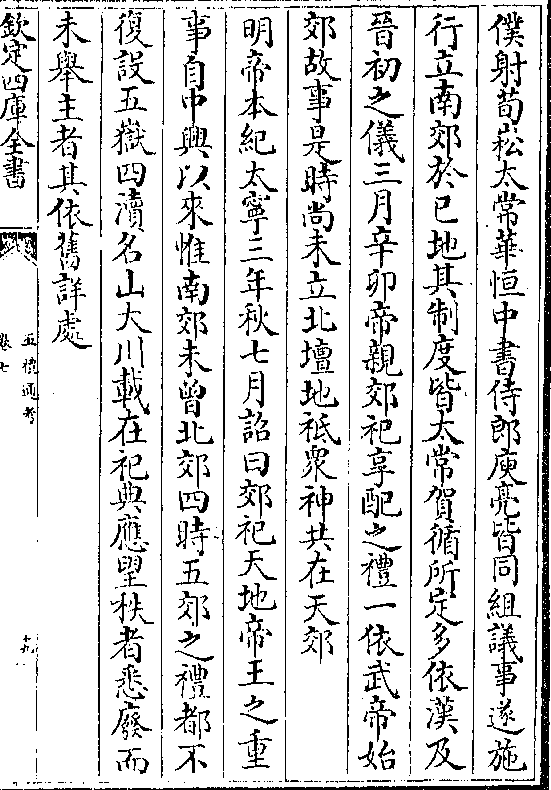 僕射荀崧太常華恒中書侍郎庾亮皆同組議事遂施
行立南郊於巳地其制度皆太常賀循所定多依漢及
晉初之儀三月辛卯帝親郊祀享配之禮一依武帝始
郊故事是時尚未立北壇地祗衆神共在天郊
明帝本紀太寧三年秋七月詔曰郊祀天地帝王之重
事自中興以來惟南郊未曾北郊四時五郊之禮都不
復設五嶽四瀆名山大川載在祀典應望秩者悉廢而
未舉主者其依舊詳處
欽定四庫全書
五禮通考
卷七
十九